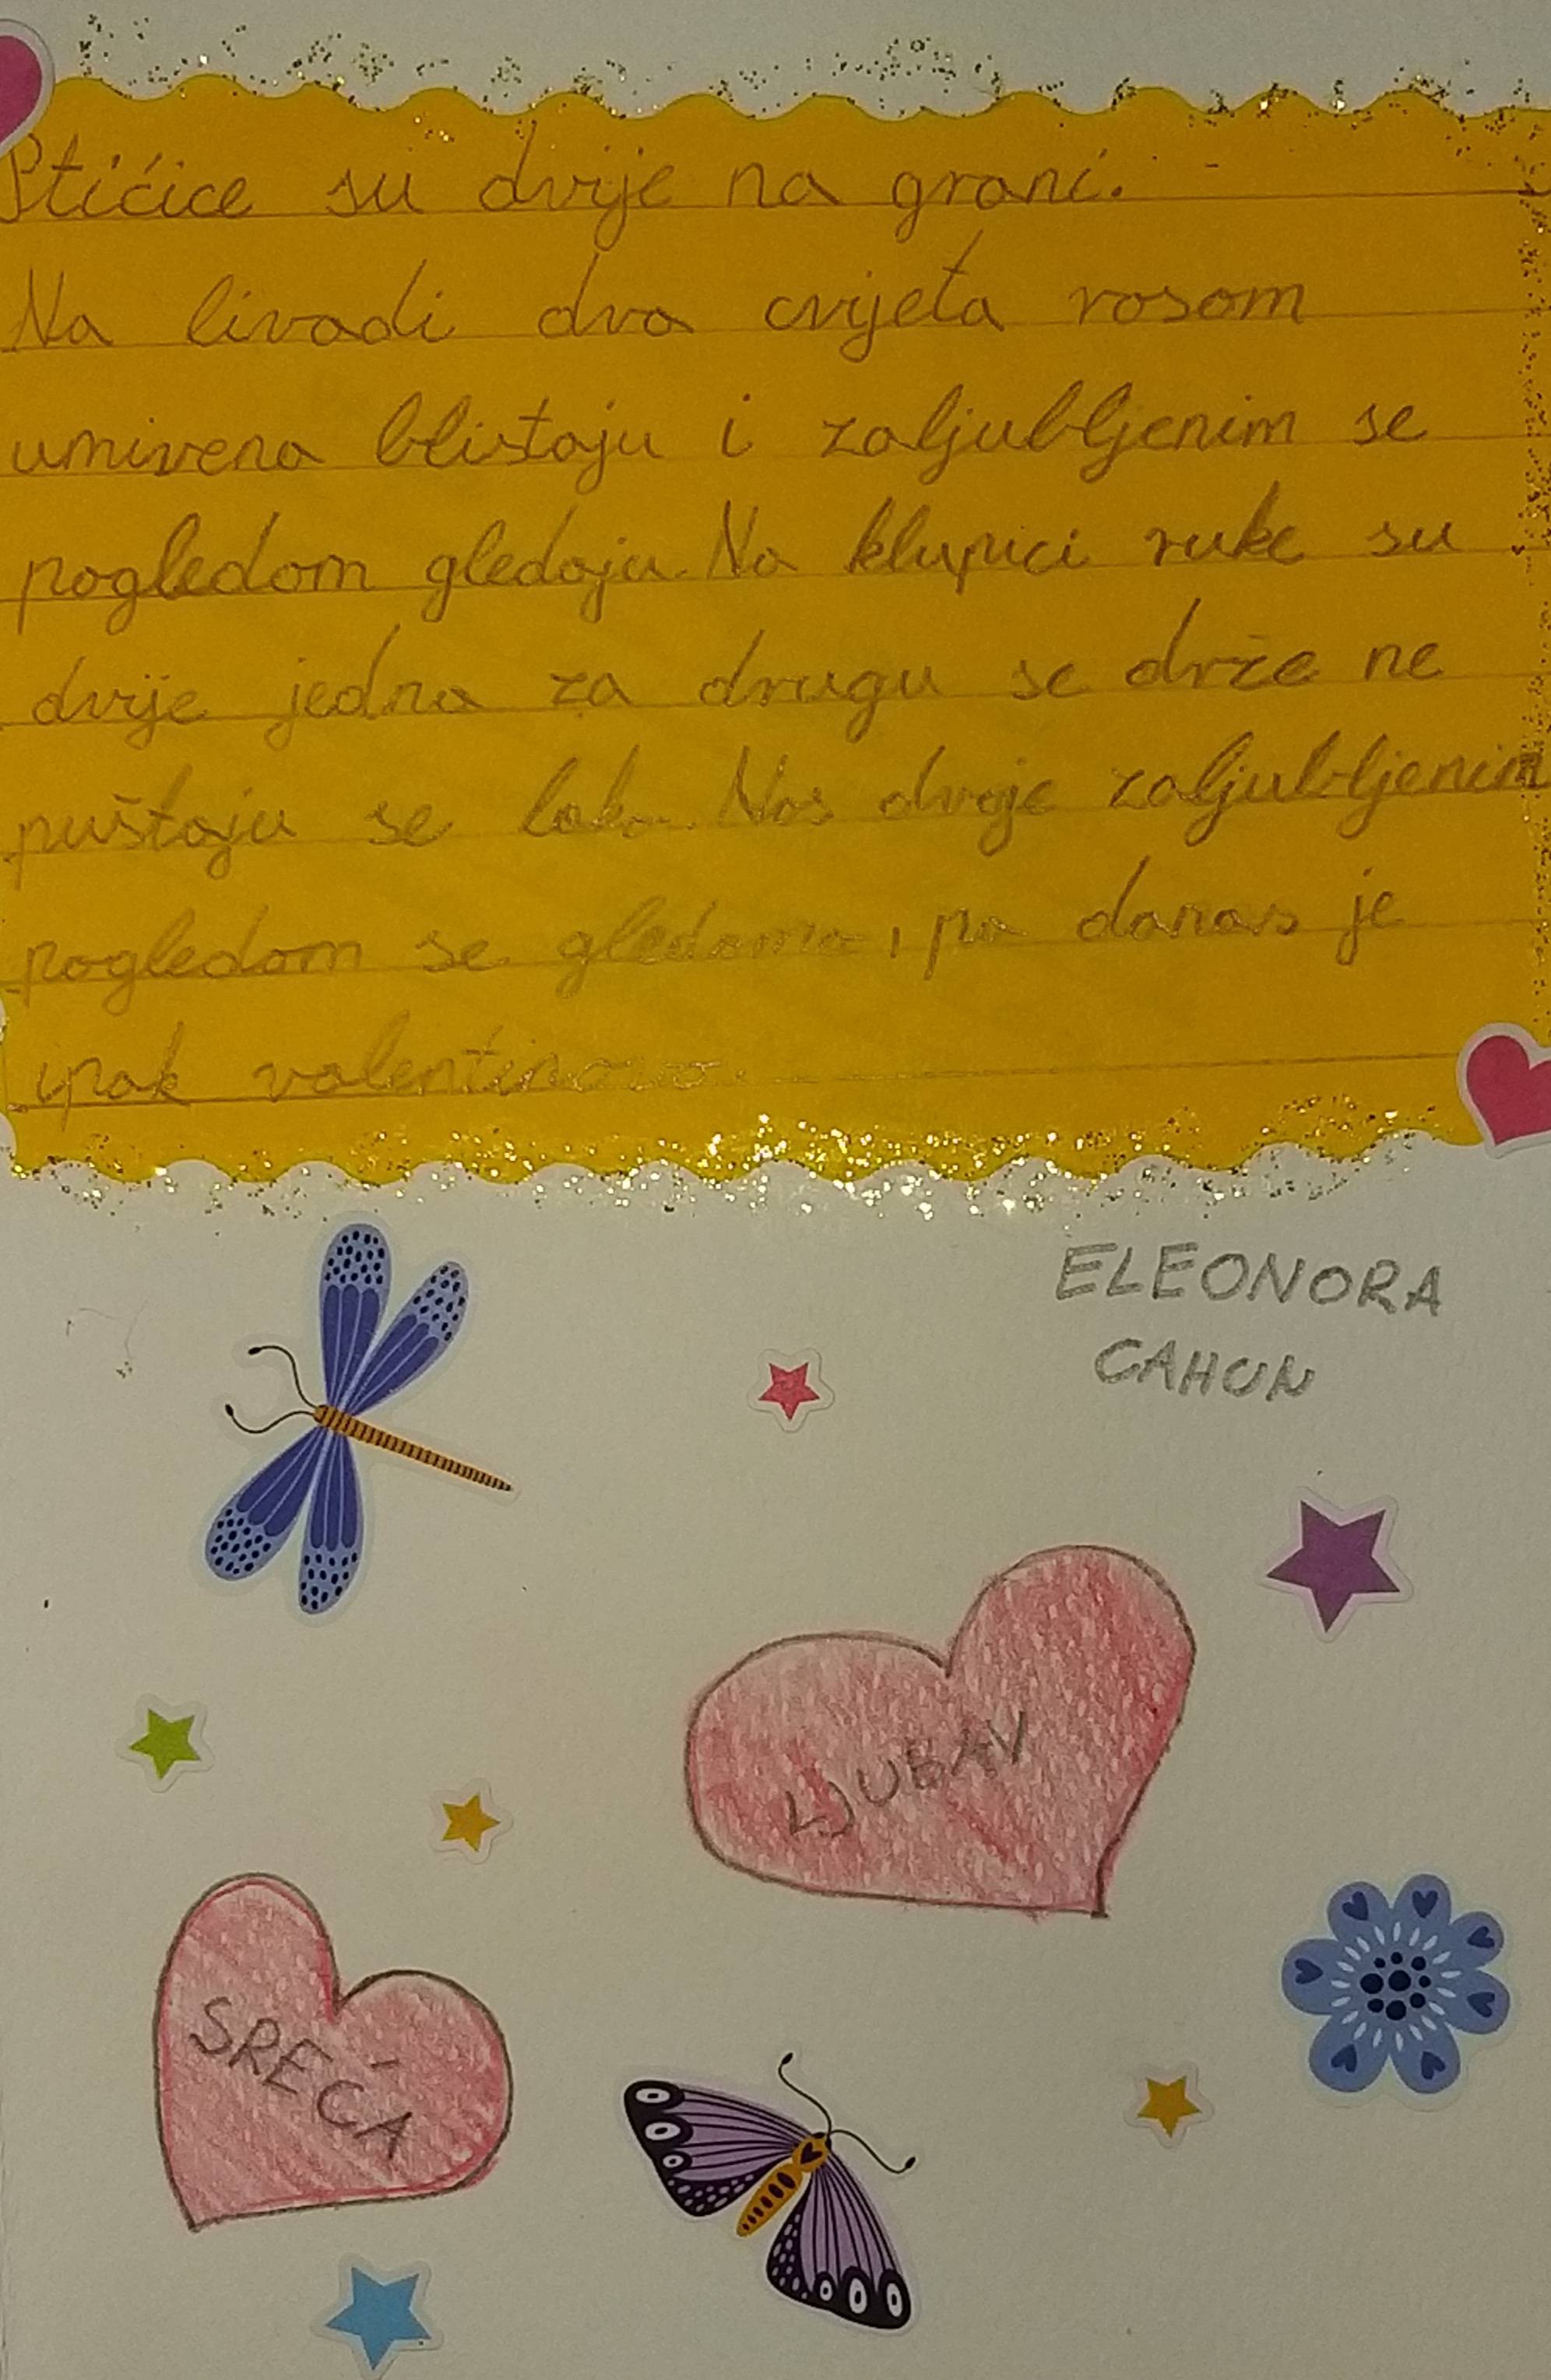 Ptičice su dvije na grani.
Na livadi dva cvijeta rosom
umivena blistaju i zaljubljenim se
pogledom gledaju. Na klupici ruke su
dvije jedna za drugu se drže ne
puštaju se lako. Nas dvoje zaljubljenim
pogledom se gledamo, pa danas je
ipak valentinovo.
ELEONORA
CAHUN
LJUBAV
SREĆA